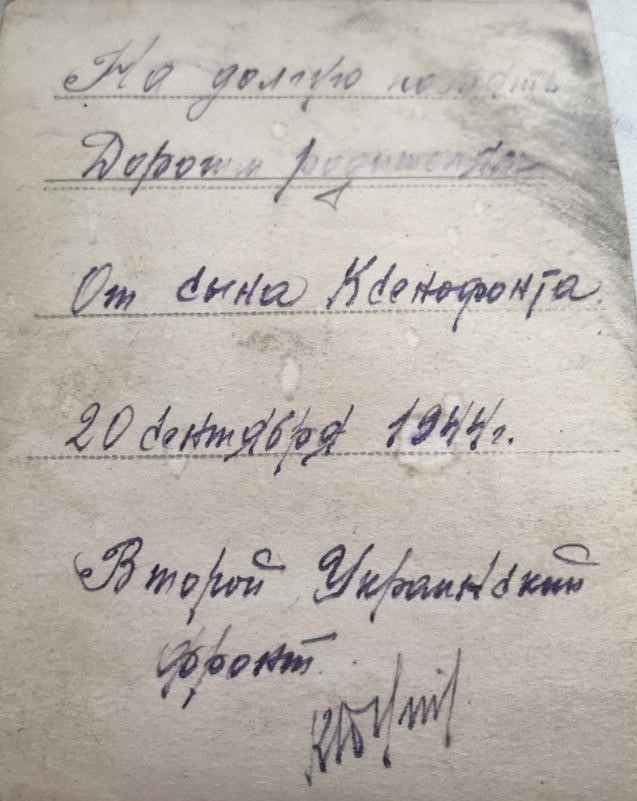 На долгую память
Дорогим родителям
От сына Ксенофонта.
20 сентября 1944 г.
Второй Украинский
фронт.